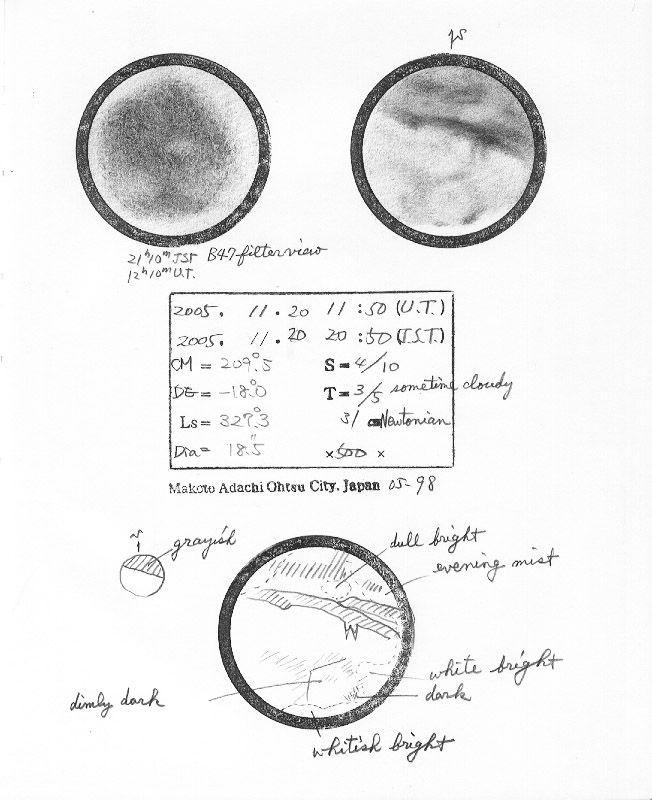 21ʰ10ᵐ JST B47-filter view
12ʰ10ᵐ U.T.
2005. 11. 20 11:50 (U.T.)
2005. 11. 20 20:50 (J.S.T.)
CM = 209°.5 S = 4/10
DE = -18°.0 T = 3/5 sometime cloudy
Ls = 327°.3 31 Newtonian
Dia = 18".5 ×500 ×
Makoto Adachi Ohtsu City, Japan 05-98
N
grayish
dull bright
evening mist
W
white bright
dark
dimly dark
whitish bright